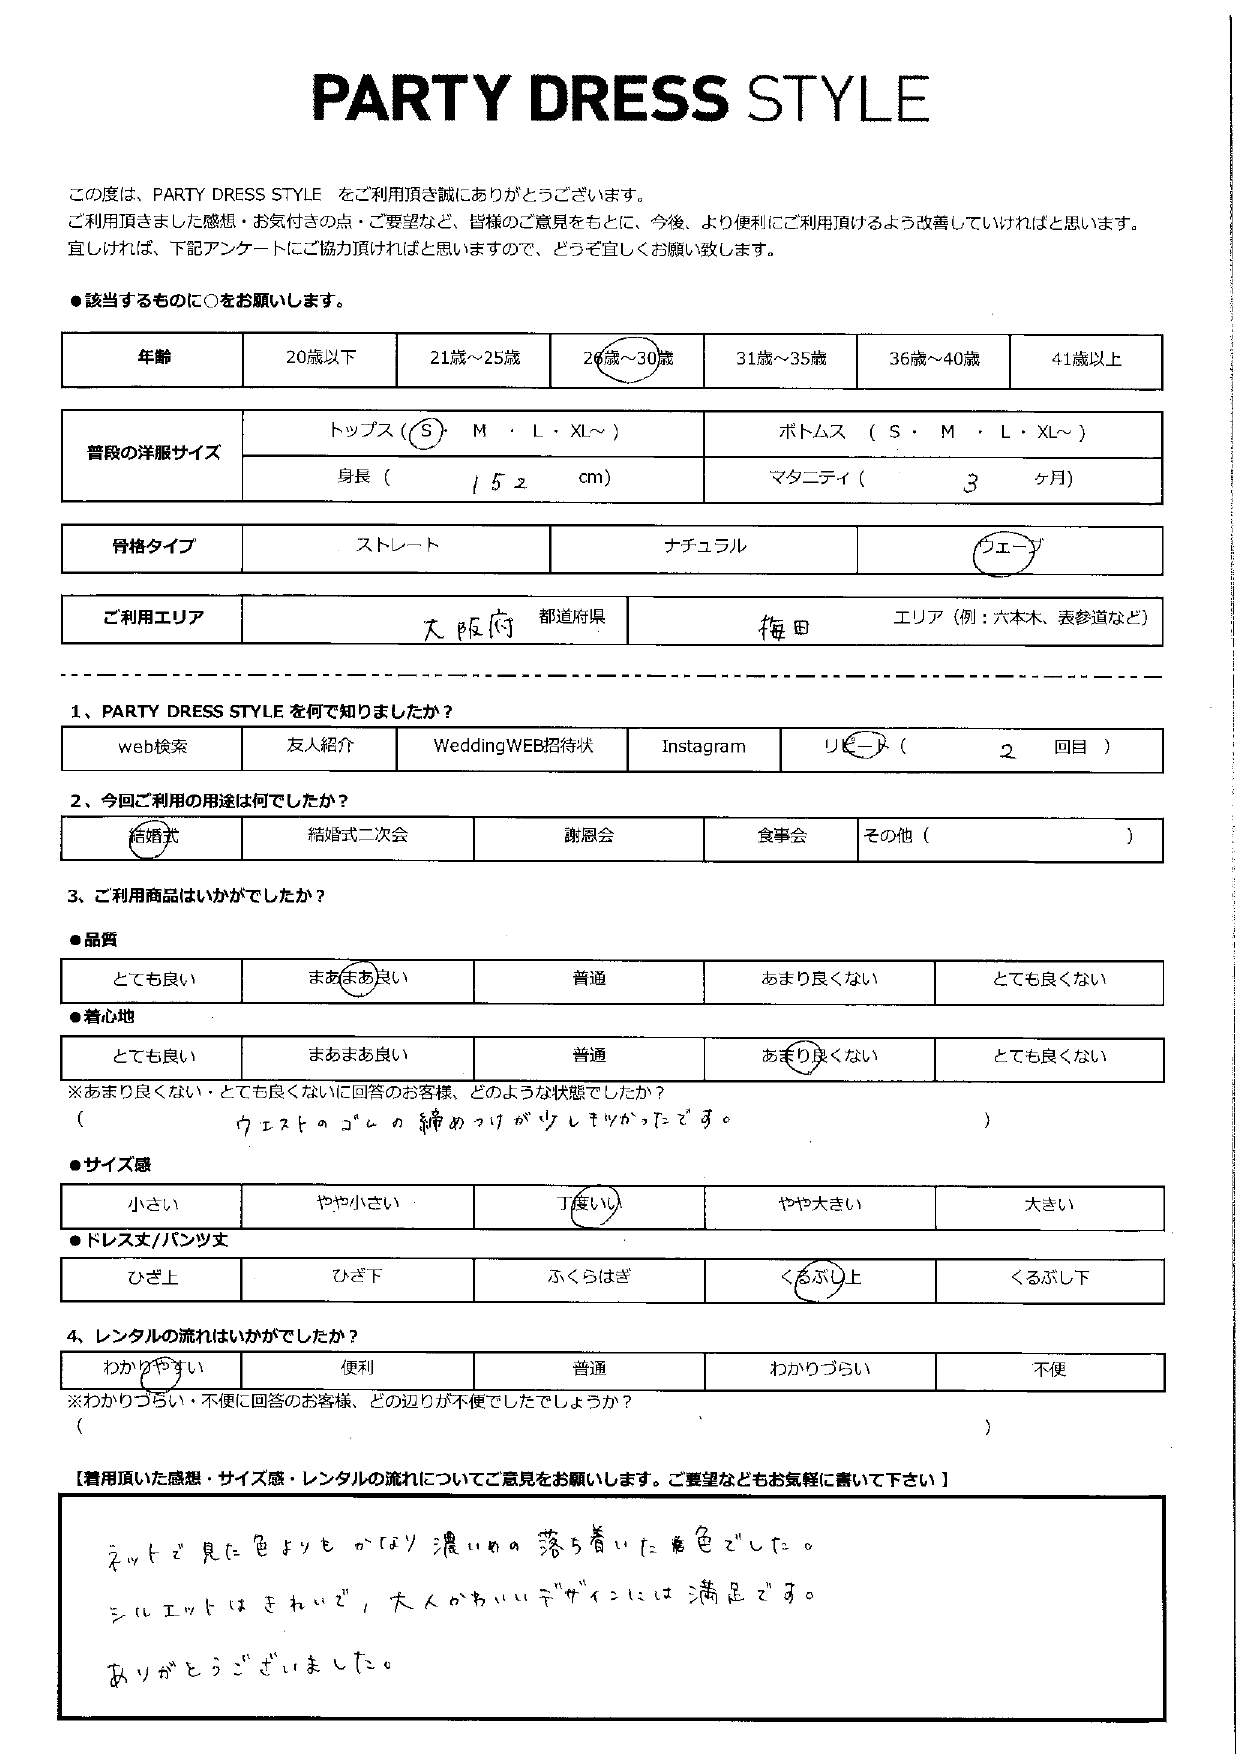 PARTY DRESS STYLE
この度は、PARTY DRESS STYLE をご利用頂き誠にありがとうございます。
ご利用頂きました感想・お気付きの点・ご要望など、皆様のご意見をもとに、今後、より便利にご利用頂けるよう改善していければと思います。
宜しければ、下記アンケートにご協力頂ければと思いますので、どうぞ宜しくお願い致します。
●該当するものに○をお願いします。
年齢 20歳以下 21歳～25歳 26歳～30歳 31歳～35歳 36歳～40歳 41歳以上
普段の洋服サイズ トップス ( S ・ M ・ L ・ XL～ ) ボトムス ( S ・ M ・ L ・ XL～ )
身長 ( 152 cm) マタニティ ( 3 ヶ月)
骨格タイプ ストレート ナチュラル ウェーブ
ご利用エリア 大阪府 都道府県 梅田 エリア（例：六本木、表参道など）
1、PARTY DRESS STYLE を何で知りましたか？
web検索 友人紹介 WeddingWEB招待状 Instagram リピート ( 2 回目 )
2、今回ご利用の用途は何でしたか？
結婚式 結婚式二次会 謝恩会 食事会 その他 ( )
3、ご利用商品はいかがでしたか？
●品質
とても良い まあまあ良い 普通 あまり良くない とても良くない
●着心地
とても良い まあまあ良い 普通 あまり良くない とても良くない
※あまり良くない・とても良くないに回答のお客様、どのような状態でしたか？
( ウエストのゴムの締めつけが少しキツかったです。 )
●サイズ感
小さい やや小さい 丁度いい やや大きい 大きい
●ドレス丈/パンツ丈
ひざ上 ひざ下 ふくらはぎ くるぶし上 くるぶし下
4、レンタルの流れはいかがでしたか？
わかりやすい 便利 普通 わかりづらい 不便
※わかりづらい・不便に回答のお客様、どの辺りが不便でしたでしょうか？
( )
【着用頂いた感想・サイズ感・レンタルの流れについてご意見をお願いします。ご要望などもお気軽に書いて下さい 】
ネットで見た色よりもかなり濃いめの落ち着いた色でした。
シルエットはきれいで，大人かわいいデザインには満足です。
ありがとうございました。